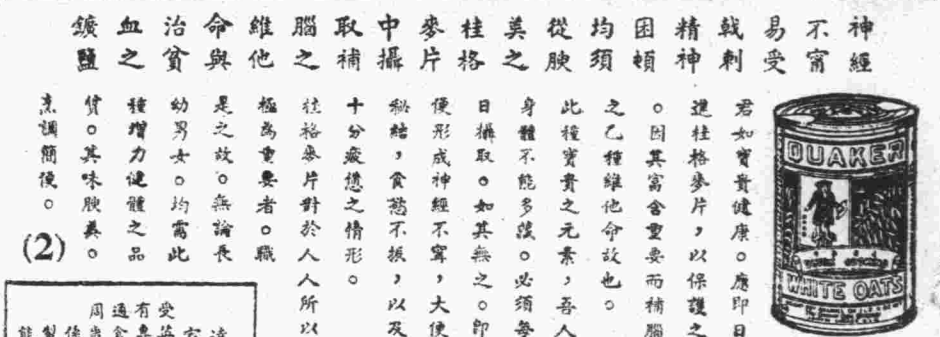 神經
不甯
易受
戟刺
精神
困頓
均須
從腴
美之
桂格
麥片
中攝
取補
腦之
維他
命與
治貧
血之
鑛鹽
君如寳貴健康。應即日
進桂格麥片,以保護之
。因其富含重要而補腦
之乙種維他命故也。
此種寳貴之元素,吾人
身體不能多。必須每
日攝取。如其無之。即
便形成神經不寧,大便
秘結,食慾不振,以及
十分疲憊之情形。
桂格麥片對於人人所以
極為重要者。職
是之故。無論長
幼男女。均需此
種增力健體之品
質。其味腴美。
烹調簡便。
(2)
QUAKER
WHITE OATS